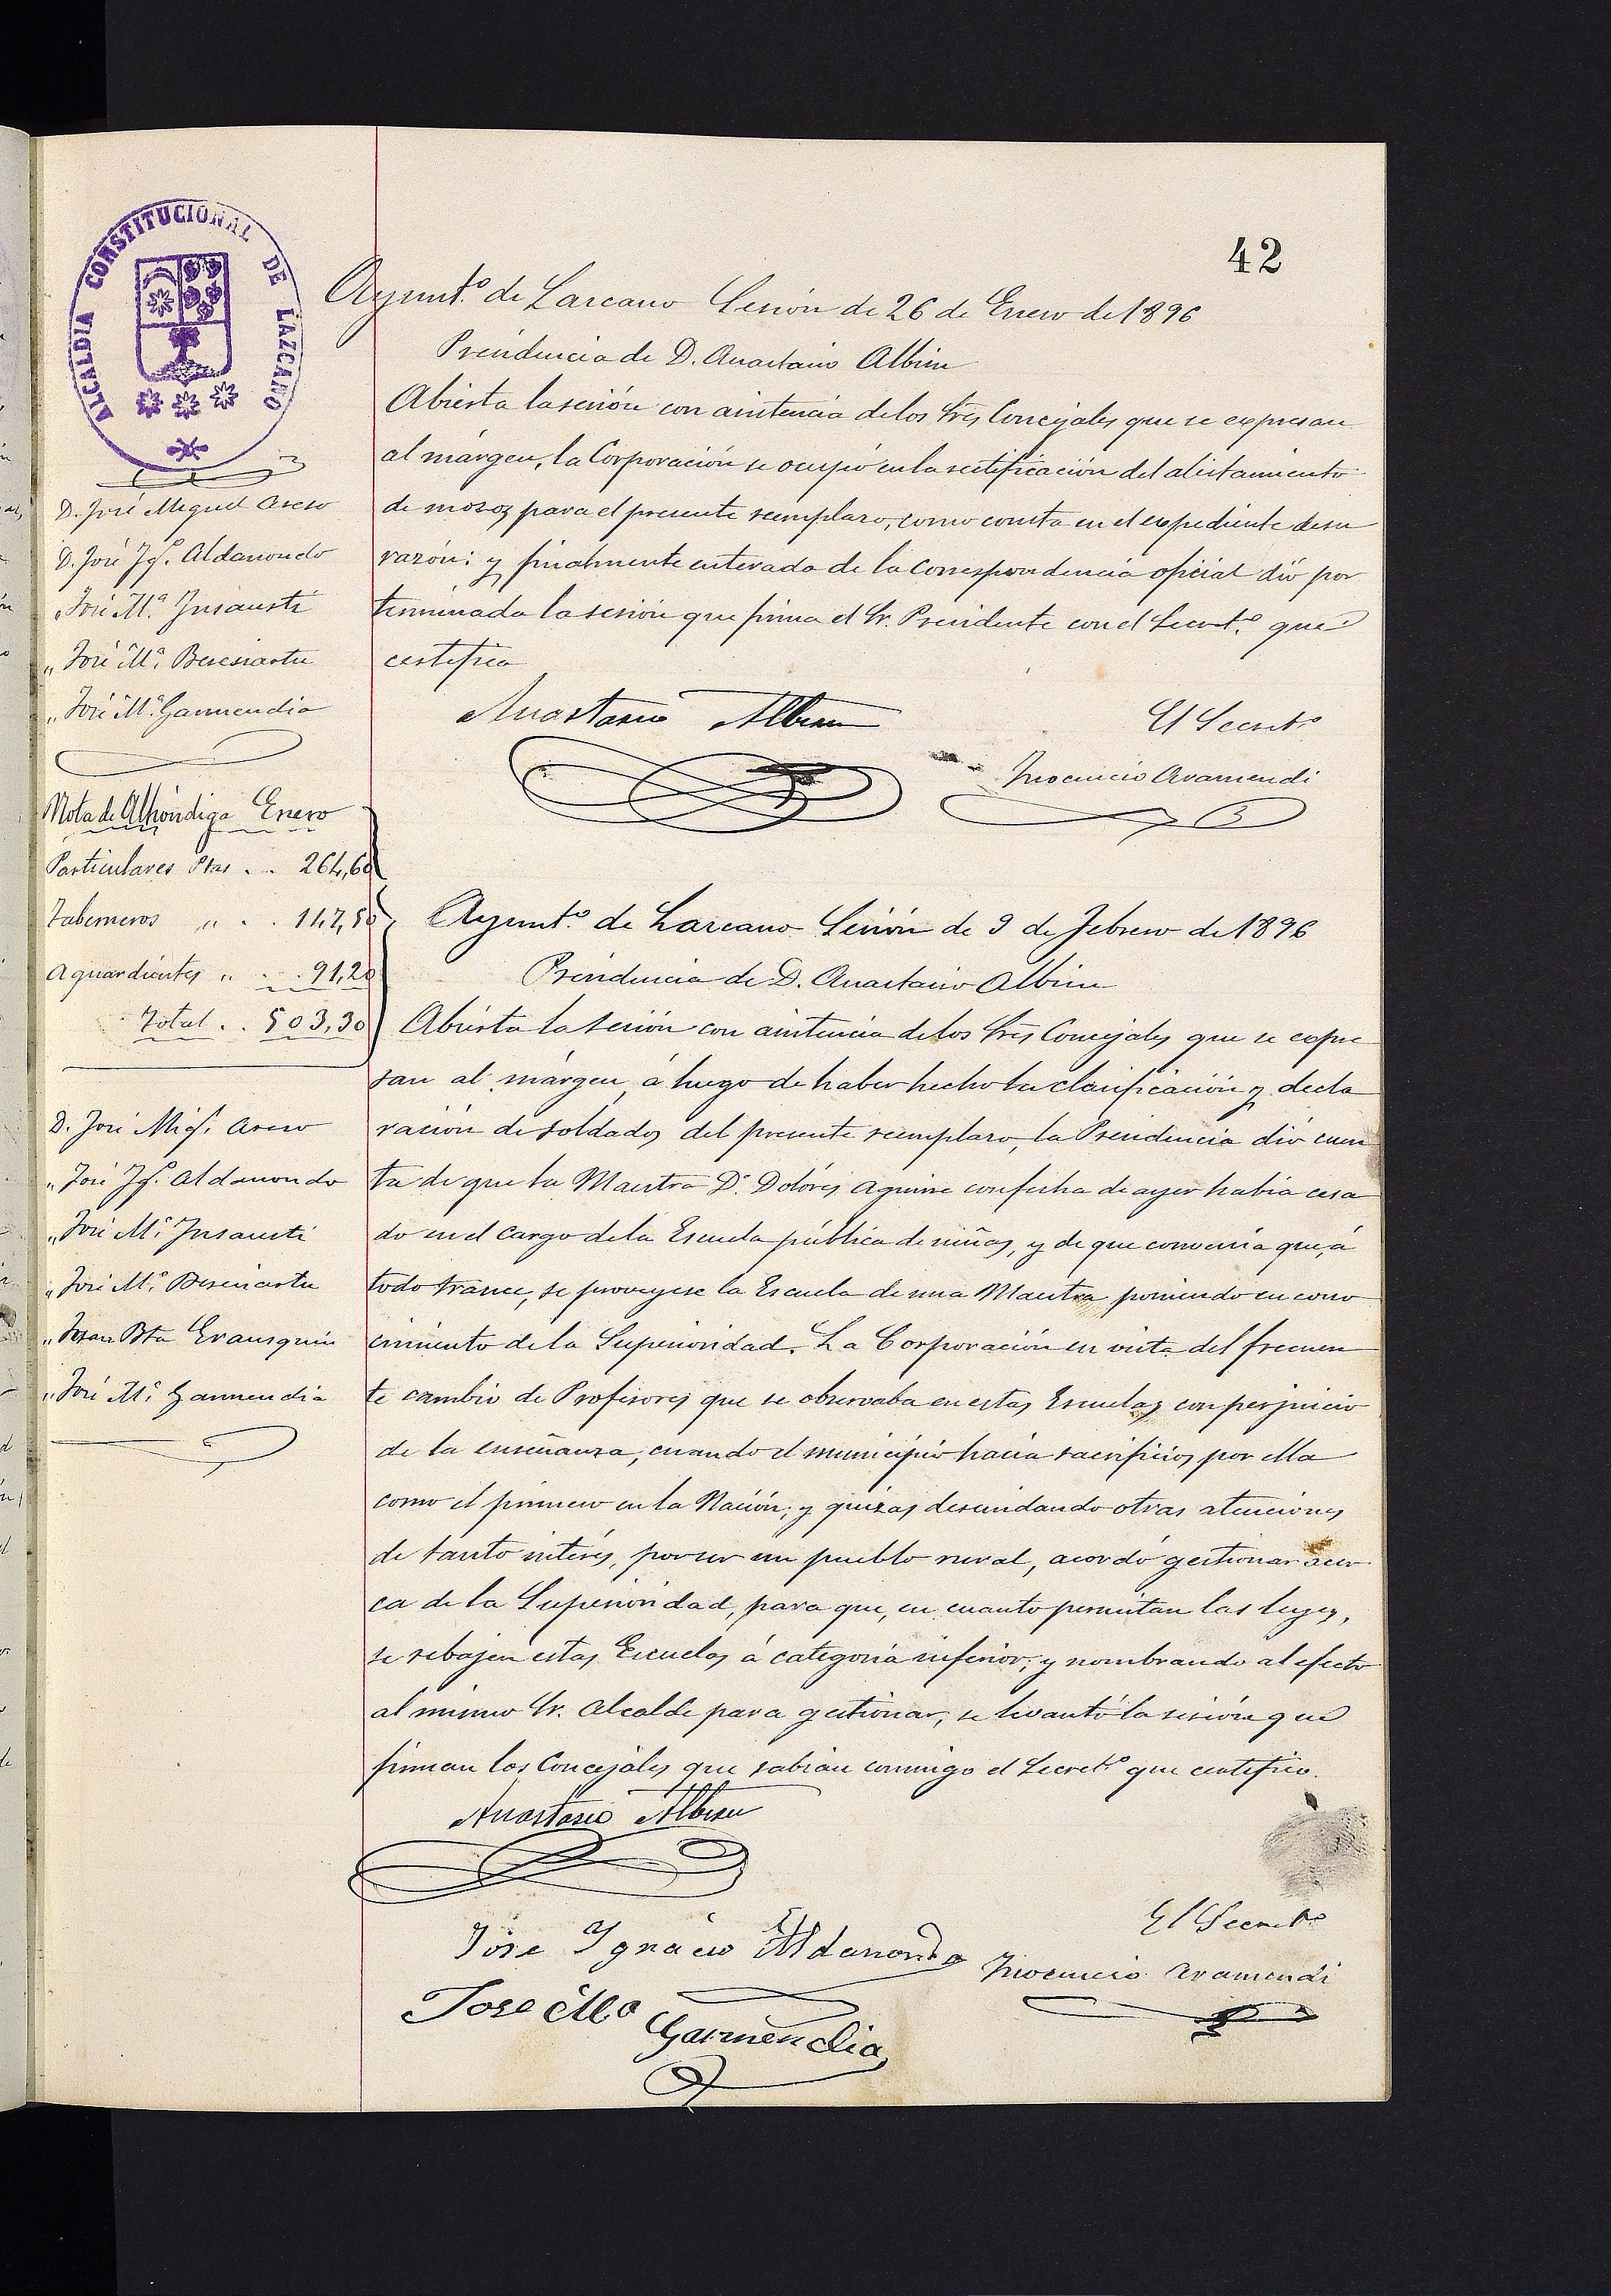 42
ALCALDIA CONSTITUCIONAL DE LAZCANO
Ayunt.º de Lazcano Sesión de 26 de Enero de 1896
Presidencia de D. Anastasio Albisu
Abierta la sesión con asistencia de los Sres Concejales que se expresan
al márgen, la Corporación se ocupó en la rectificación del alistamiento
de mozos para el presente reemplazo, como consta en el expediente de su
razón: y finalmente enterada de la correspondencia oficial dió por
terminada la sesión que firma el Sr. Presidente con el Secret.º que
certifica
D. José Miguel Areso
D. José Ig.º Aldanondo
„ José M.ª Insausti
„ José M.ª Beresiartu
„ José M.ª Garmendia
Anastasio Albisu
El Secret.º
Inocencio Aramendi
Nota de Alhóndiga Enero
Particulares Ptas . . 264,60
Taberneros „ . . 147,50
Aguardientes „ . . 91,20
Total . . 503,30
Ayunt.º de Lazcano Sesión de 9 de Febrero de 1896
Presidencia de D. Anastasio Albisu
Abierta la sesión con asistencia de los Sres Concejales que se expre
san al márgen, á luego de haber hecho la clasificación y decla
ración de soldados del presente reemplazo, la Presidencia dió cuen
ta de que la Maestra D.ª Dolóres Aguirre con fecha de ayer había cesa
do en el cargo de la Escuela pública de niñas, y de que convenía que, á
todo trance, se proveyese la Escuela de una Maestra poniendo en cono
cimiento de la Superioridad. La Corporación en vista del frecuen
te cambio de Profesores que se observaba en estas Escuelas con perjuicio
de la enseñanza, cuando el municipio hacía sacrificios por ella
como el primero en la Nación; y quizas descuidando otras atenciones
de tanto interés, por ser un pueblo rural, acordó gestionar acer
ca de la Superioridad, para que, en cuanto permitan las leyes,
se rebajen estas Escuelas á categoría inferior; y nombrando al efecto
al mismo Sr. Alcalde para gestionar, se levantó la sesión que
firman los Concejales que sabían conmigo el Secret.º que certifico.
D. José Mig.l Areso
„ José Ig.º Aldanondo
„ José M.ª Insausti
„ José M.ª Beresiartu
„ Juan Bta Erausquin
„ José M.ª Garmendia
Anastasio Albisu
José Ignacio Aldanondo
El Secret.º
Inocencio Aramendi
Jose M.ª
Garmendia